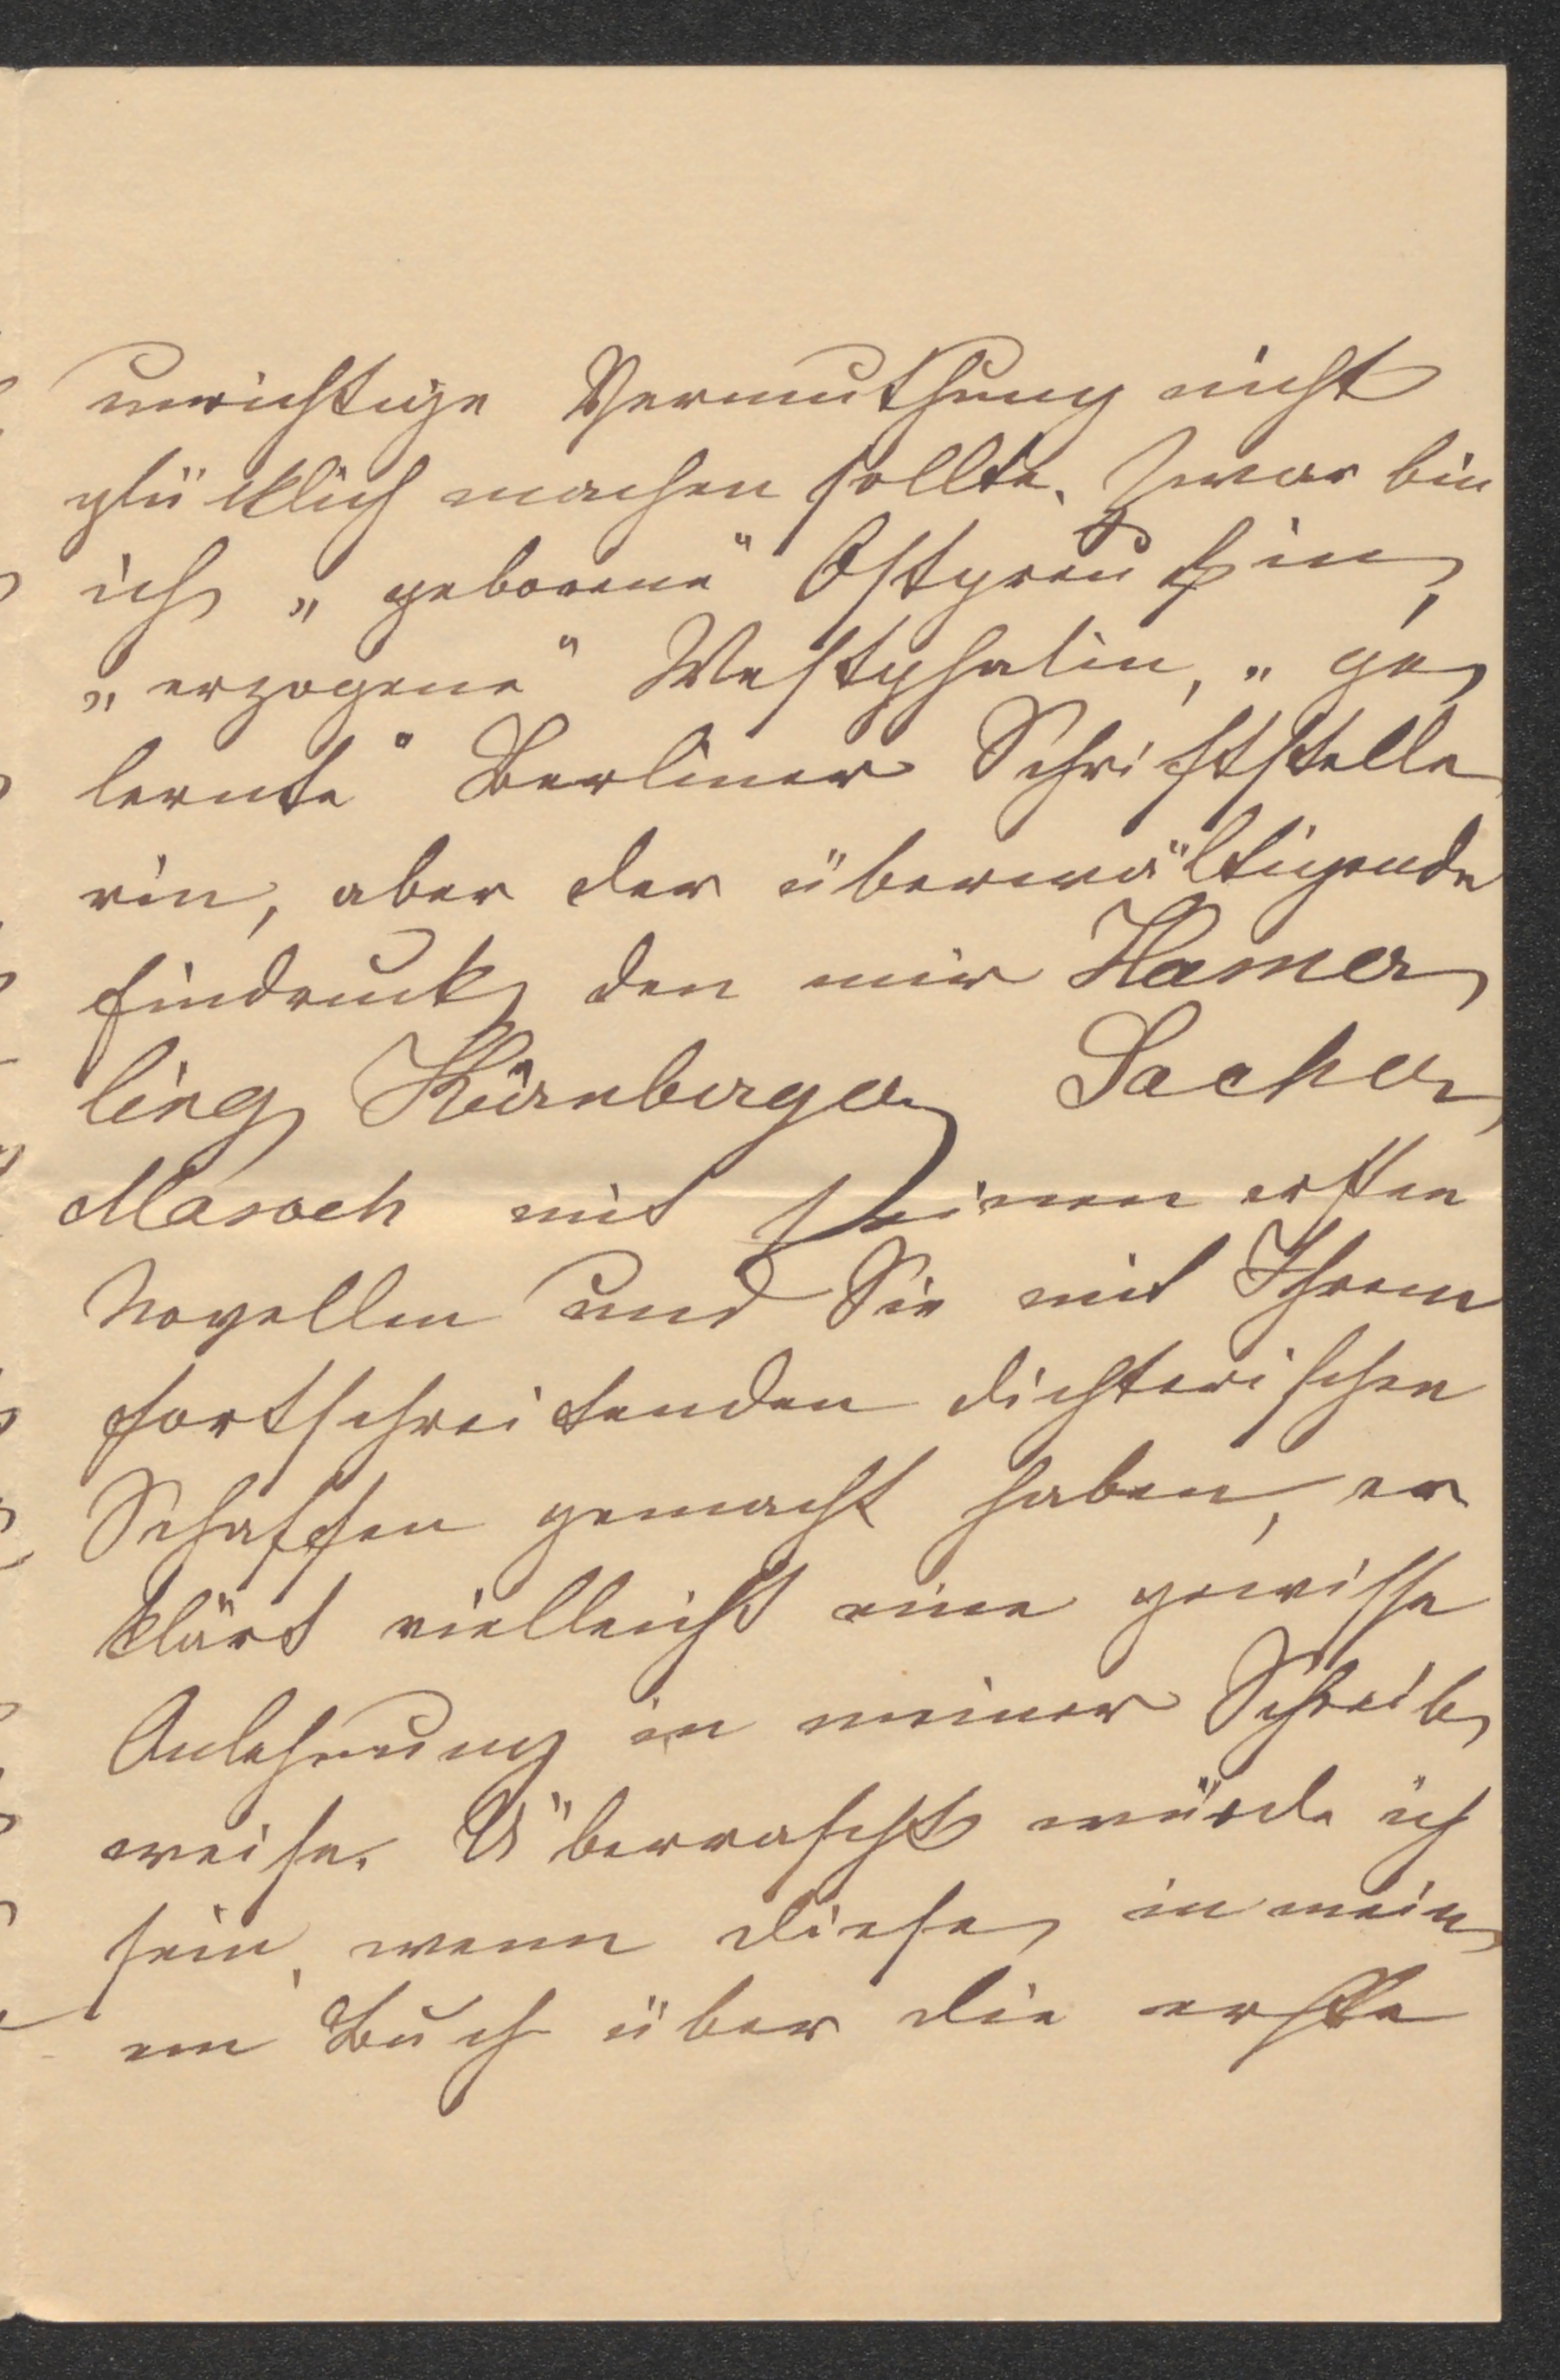 unrichtige Vermuthung nicht
glücklich machen sollte. Zwar bin
ich „geborene" Ostpreußin,
„erzogene" Westphalin, „ge
lernte" Berliner Schriftstelle
rin, aber der überwältigende
Eindruck den mir Hamer
ling Kürnberger Sacher
Masoch mit seinen ersten
Novellen und Sie mit Ihrem
fortschreitenden dichterischen
Schaffen gemacht haben, er
klärt vielleicht eine gewisse
Anlehnung in meiner Schreib
weise. Überrascht würde ich
sein, wenn diese in mein
em Buch über die erste